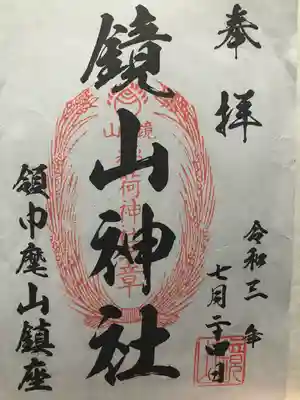 奉拝
鏡山神社
領巾麾山鎮座
令和三年
七月二十四日
鏡山
稲荷神社章